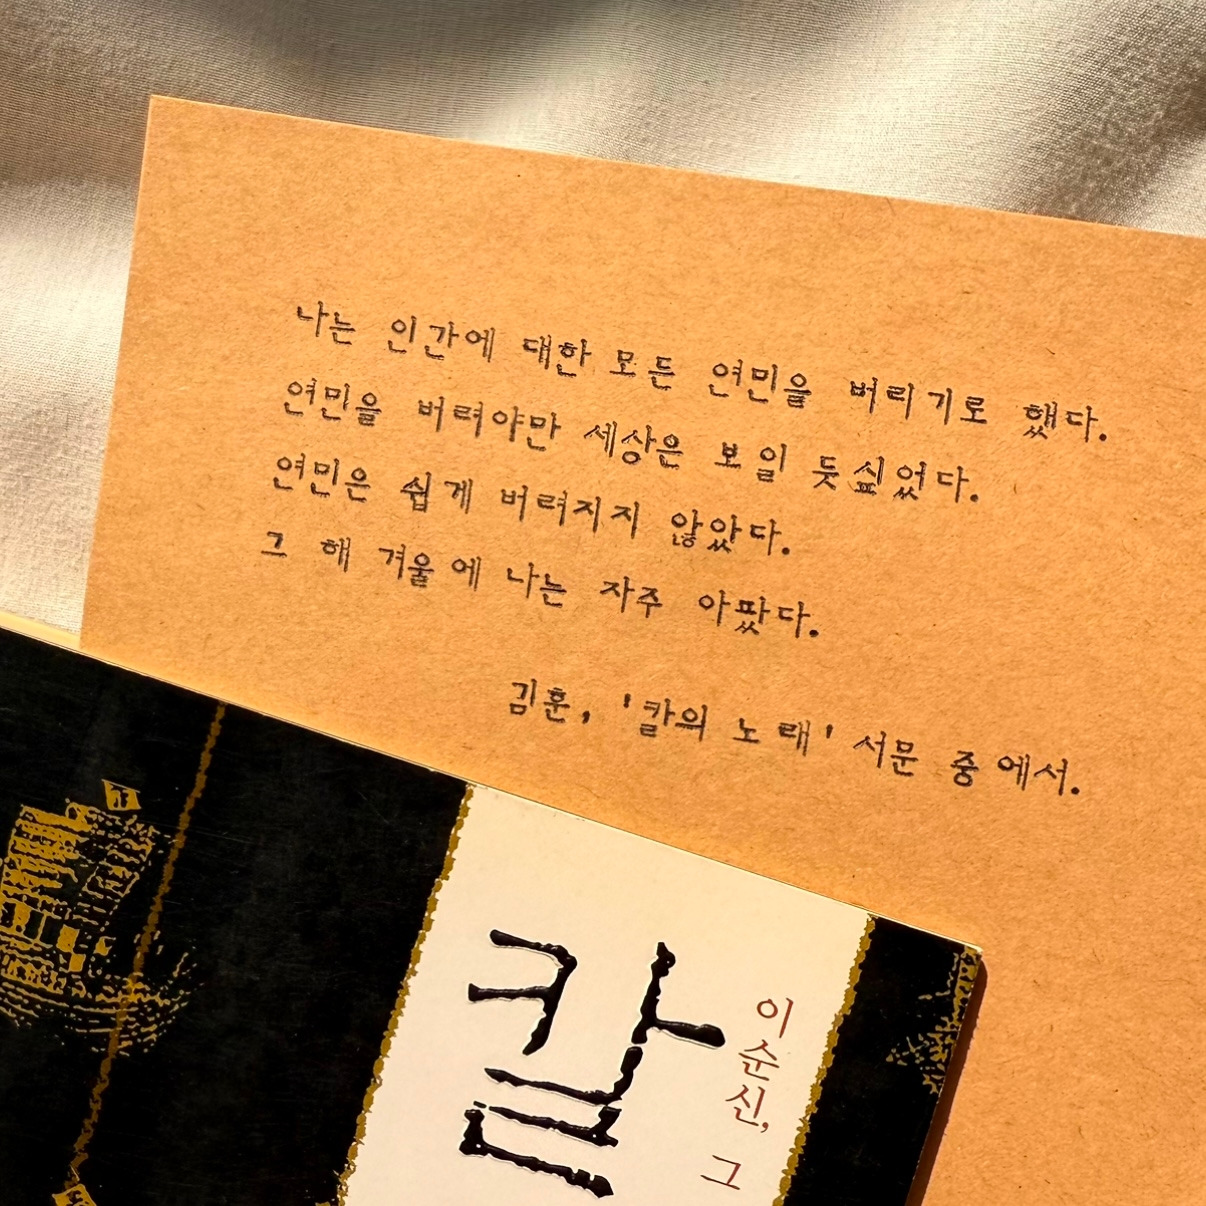 나는 인간에 대한 모든 연민을 버리기로 했다.
연민을 버려야만 세상은 보일 듯싶었다.
연민은 쉽게 버려지지 않았다.
그 해 겨울에 나는 자주 아팠다.
김훈, '칼의 노래' 서문 중에서.
칼
이순신, 그